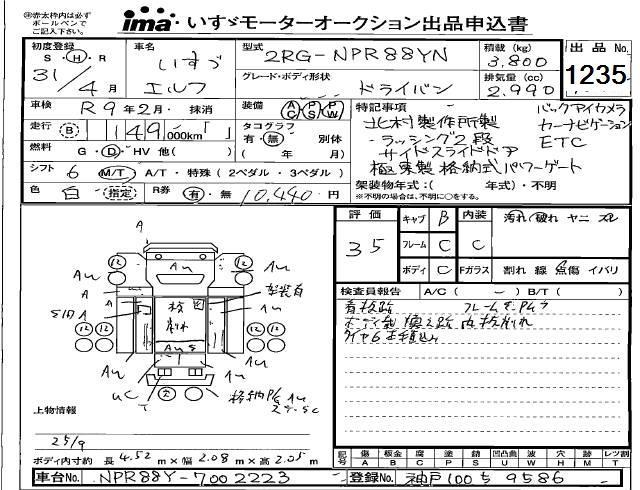 ima いすゞモーターオークション出品申込書
㊟赤太枠内は必ず
ボールペンで
ご記入下さい
初度登録 S・H・R 31/4月
車名 いすゞ エルフ
型式 2RG-NPR88YN
グレード・ボディ形状 ドライバン
積載(kg) 3,800
排気量(cc) 2,990
出品No. 1235
車検 R9年2月・抹消
装備 AC PS PW
走行 B 149,000km「 」
タコグラフ 有・無 別体
( 年 月)
燃料 G・D・HV 他( )
シフト 6 M/T・A/T・特殊(2ペダル・3ペダル)
色 白 指定
R券 有・無 10,440円
特記事項
北村製作所製
・ラッシング2段
サイドスライドドア
極東製格納式パワーゲート
バックアイカメラ
カーナビゲーション
ETC
架装物年式:( 年式)・不明
※不明の場合は、不明に○をする。
評価 3.5
キャブ B
フレーム C
ボディ C
内装 C
汚れ/破れ ヤニ スレ
Fガラス 割れ 線 点傷 イバリ
検査員報告 A/C( ー )B/T( )
A
12 12
AU AU AU
A
S10A
12 12 12 12
AU AU
AUS
UC T
格納P/G AU
上物情報
ボディ内寸約 長4.52m×幅2.08m×高2.05m
記号 傷A 板金B 腐C 塗P 錆S 凹凸曲U 波W 穴H 跡M レツ割T
車台No. NPR88Y-7002223
登録No. 神戸100 9586